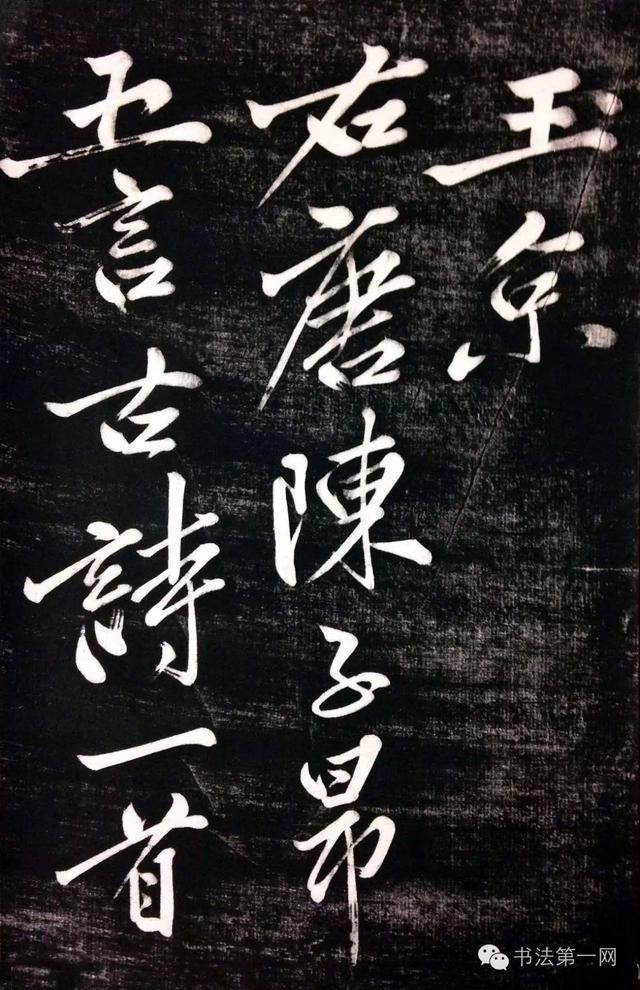 玉京
右唐陳子昂
五言古詩一首
书法第一网